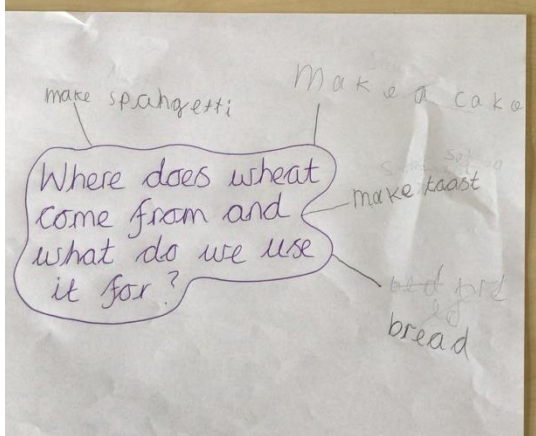 make spahgetti
Make a cake
Where does wheat
come from and
what do we use
it for?
make toast
bread